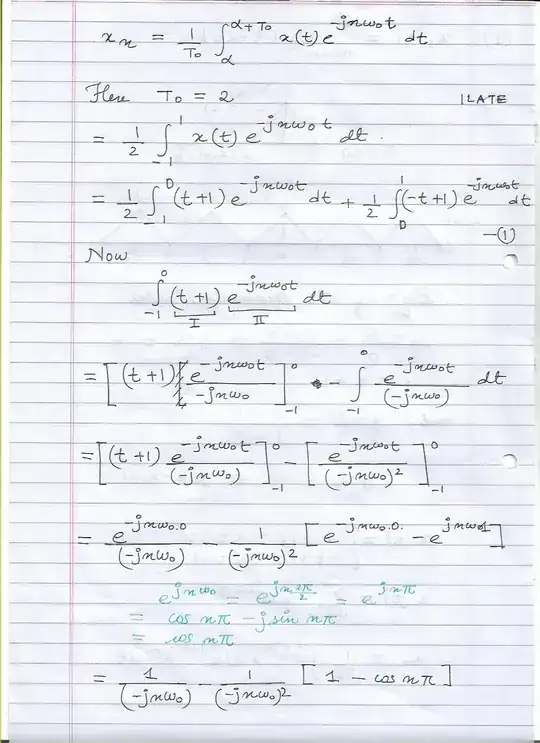 xₙ = 1/T₀ ∫_α^{α+T₀} x(t) e^{-jnω₀t} dt
Here T₀ = 2 ILATE
= 1/2 ∫_{-1}^{1} x(t) e^{-jnω₀t} dt.
= 1/2 ∫_{-1}^{0} (t+1) e^{-jnω₀t} dt + 1/2 ∫_0^1 (-t+1) e^{-jnω₀t} dt
—①
Now
∫_{-1}^{0} (t+1) e^{-jnω₀t} dt
I II
= [(t+1) e^{-jnω₀t}/-jnω₀]_{-1}^{0} - ∫_{-1}^{0} e^{-jnω₀t}/(-jnω₀) dt
= [(t+1) e^{-jnω₀t}/(-jnω₀)]_{-1}^{0} - [e^{-jnω₀t}/(-jnω₀)²]_{-1}^{0}
= e^{-jnω₀.0}/(-jnω₀) - 1/(-jnω₀)² [e^{-jnω₀.0.} - e^{jnω₀1}]
e^{jnω₀} = e^{jn2π/2} = e^{jnπ}
= cos nπ - j sin nπ
= cos nπ
= 1/(-jnω₀) - 1/(-jnω₀)² [1 - cos nπ]